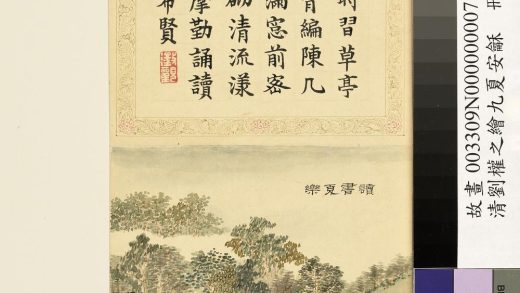 故畫 003309N00000000007
清劉權之繪九夏安龢
習草亭
青編陳几
滿窓前
清流漾
摩勤誦讀
希賢
讀書夏樂